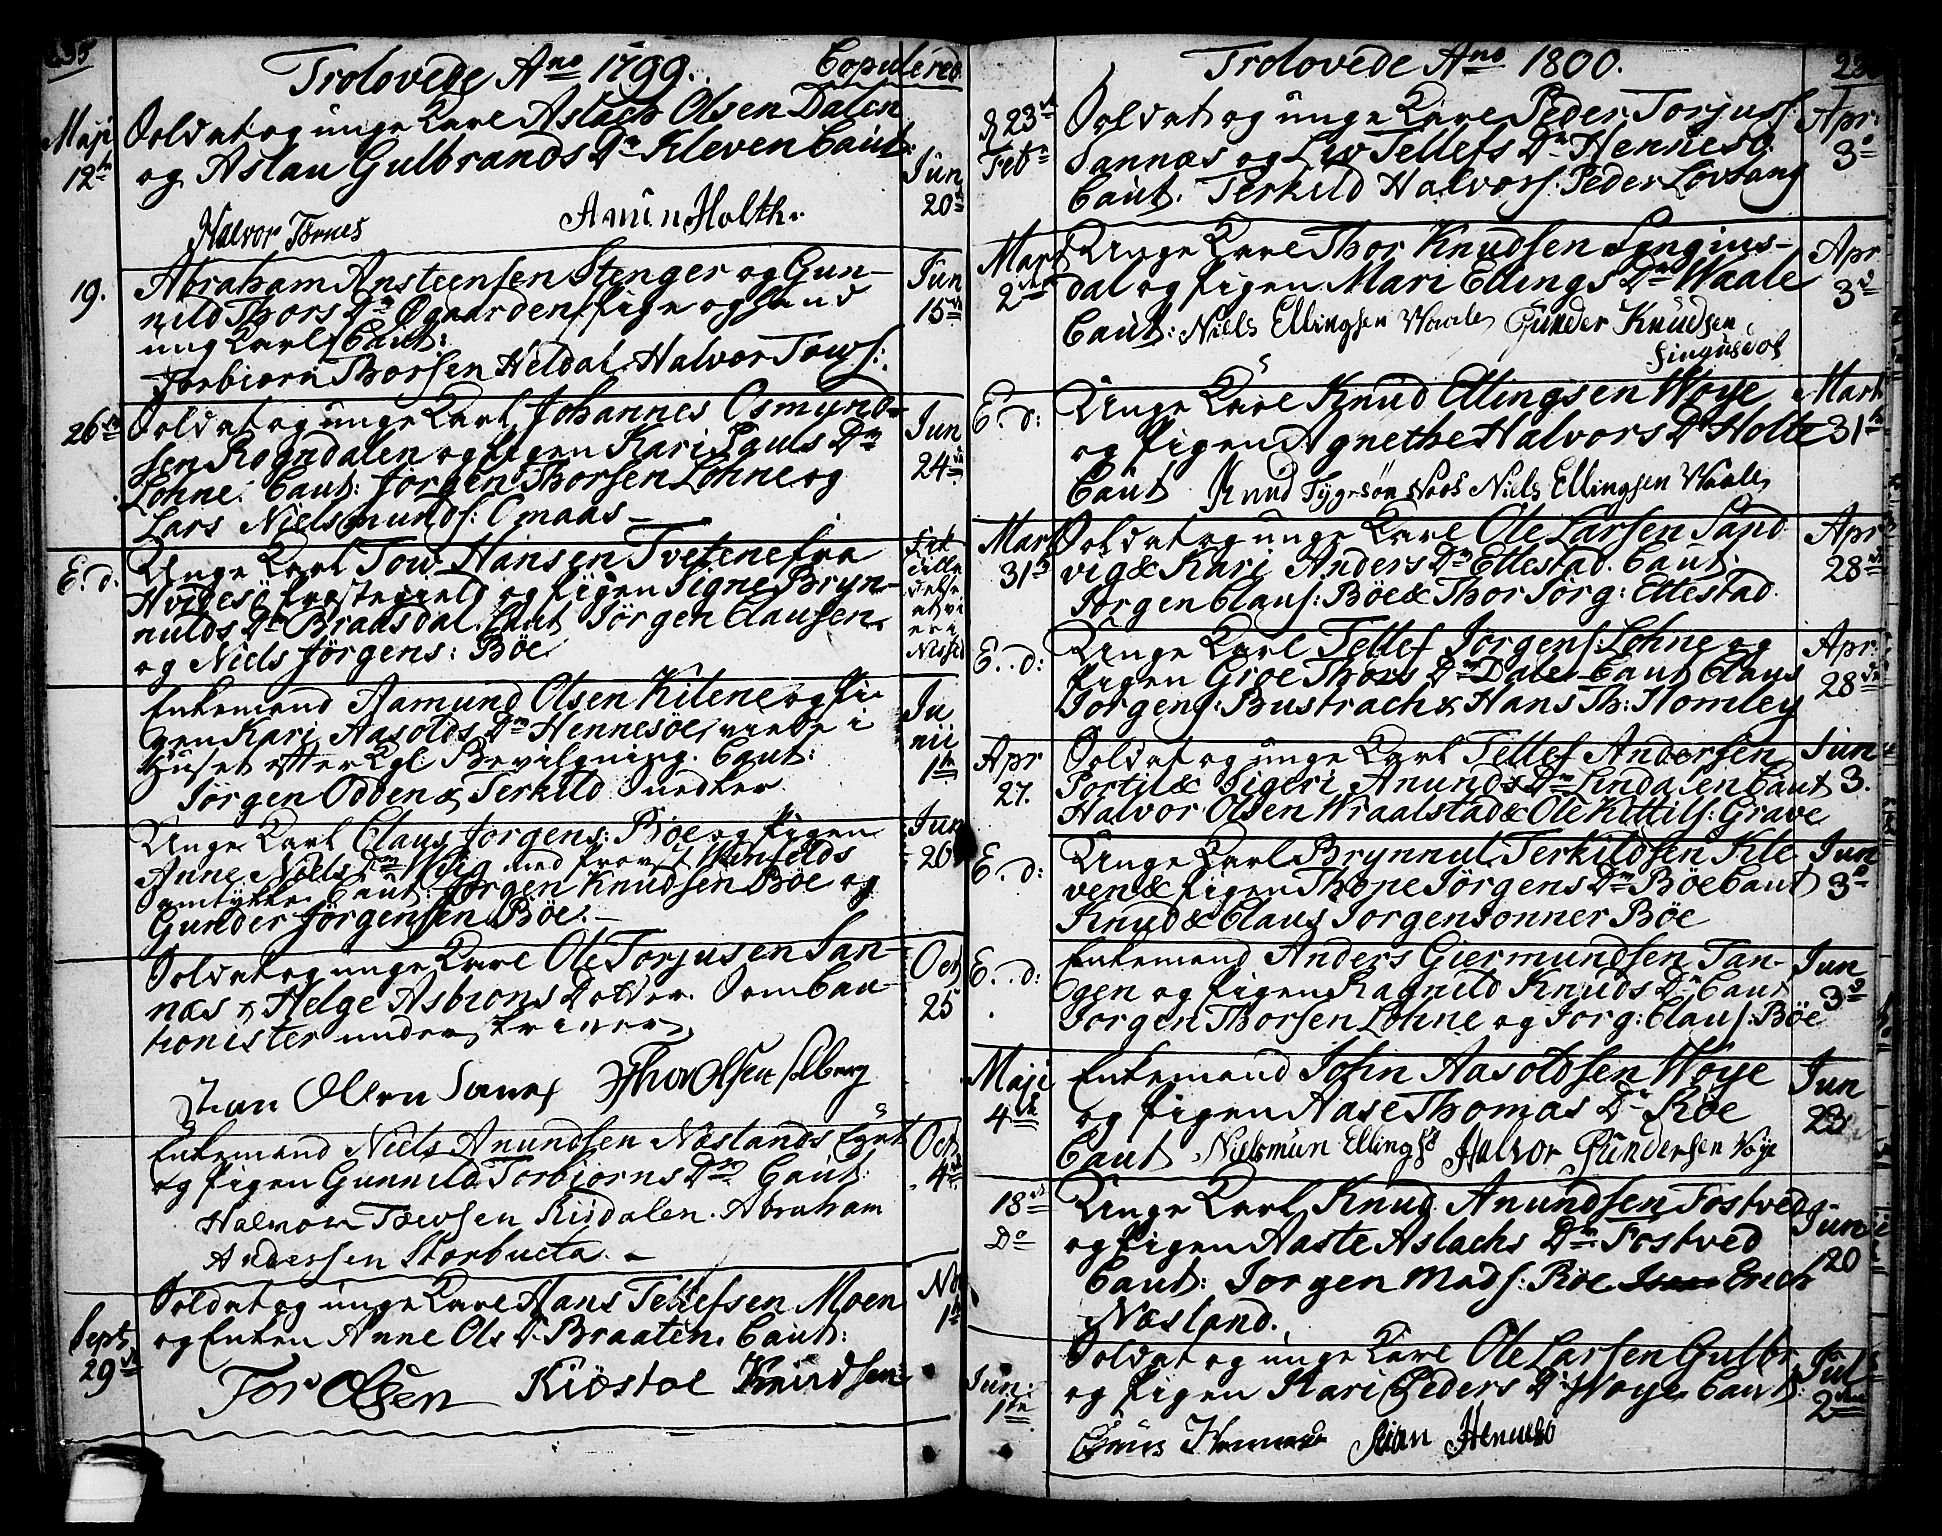 Trolovede Ano 1799. Copulered
Maji 12te
Soldat og unge Karl Aslach Olsen Dalen
og Aslau Gulbrands Dr Kleven Caut:
Jun 20de
Halvor Tornes Anun Holth
19.
Abraham Ansteensen Stenger og Gun-
nild Thors Dr Øgaarden Pige og hand
ung Karl Caut:
Torbiorn Thorsen Heldal. Halvor Tows:
Jun 15de
26de
Soldat og unge Karl Johannes Osmynd-
sen Rogndalen og Pigen Kari Pauls Dr
Lohne. Caut: Jørgen Thorsen Lohne og
Lars Nielsmunds: Omaas
Jun 24de
E. d:
Unge Karl Tow Hansen Tvetene fra
Hvidesø Præstegield og Pigen Signe Bryn-
nulds Dr Braasdal. Caut Jörgen Clausen
og Niels Jörgens: Böe
Enkemand Aamund Olsen Kitene og Pi-
gen Kari Aasolds Dr Hennesøe, viede i
Huset efter Kgl. Bevilgning. Caut:
Jörgen Odden & Terkild Snedker
Junii 1te
Unge Karl Claus Jorgens: Bøe og Pigen
Anne Niels Dr Wiig med Provst Winfelds
Samtykke Caut: Jörgen Knudsen Böe og
Gunder Jörgensen Böe.
Jun 26
Soldat og unge Karl Ole Torjusen San-
næs & Helge Asbions Dotter. Som Cau-
tionister underskriver
Oct 25
Olsen Sanes Thor Olsen Solberg
Enkemand Niels Anundsen Næslands Eyet
og Pigen Gunnild Torbiorns Dr Caut:
Halvor Towsen Rudalen. Abraham
Andersen Storbueta.
Oct. 4de
Sept 29de
Soldat og unge Karl Hans Tellefsen Moen
og Enken Anne Ols Dr Braaten. Caut:
Tor Olsen Kiöstol Knudsen
No 1te
Trolovede Ano 1800.
23de Feb
Soldat og unge Karl Peder Torjuss:
Sannæs og Liv Tellefs Dr Hennesø.
Caut: Terkild Halvors: Peder Løvsang
Apr: 3
Mart 2den
Unge Karl Thor Knudsen Syngius-
dal og Pigen Mari Ellings Dr Waale
Caut: Niels Ellingsen Waale Gunder Knudsen
Singusdal
Apr 3
E. d:
Unge Karl Knud Ellingsen Woye
og Pigen Agnethe Halvors Dr Holte
Caut Knud Tygesøn Noes Niels Ellingsen Waale
Mart 31te
Mart 31te
Soldat og unge Karl Ole Larsen Sand
vig & Kari Anders Dr Ettestad. Caut:
Jorgen Claus: Böe & Thor Jörg: Ettestad
Apr 28de
E. d:
Unge Karl Tellef Jorgens: Lohne og
Pigen Groe Thors Dr Dale. Caut Claus
Jorgens: Bustrach & Hans Th: Homley
Apr: 28de
Apr 27.
Soldat og unge Karl Tellef Andersen
Portil & Sigeri Anunds Dr Lindalen Caut
Halvor Olsen Wraalstad & Ole Kittils: Grave
Jun 3.
E. d:
Unge Karl Brynnul Terkildsen Kle
ven & Pigen Thone Jörgens Dr Böe Caut
Knud & Claus Jorgensonner Böe
Jun 3
E. d:
Enkemand Anders Giermundsen Tan-
gen og Pigen Ragnild Knuds Dr Caut
Jorgen Thorsen Lohne og Jorg: Claus: Böe
Jun 3
Maji 4de
Enkemand John Aasoldsen Woye
og Pigen Aase Thomas Dr Röe
Caut Nielsmun Ellings: Halvor Gundersen Vöye
Jun 23
18de Do
Unge Karl Knud Anundsen Fostved
og Pigen Aaste Aslachs Dr Fostved
Caut: Jorgen Mads: Röe Erich
Næsland.
Jun 20
Jun: 1te
Soldat og unge Karl Ole Larsen Gulbr
og Pigen Kari Peders Dr Woye. Caut:
Hennesö
Jul 2den